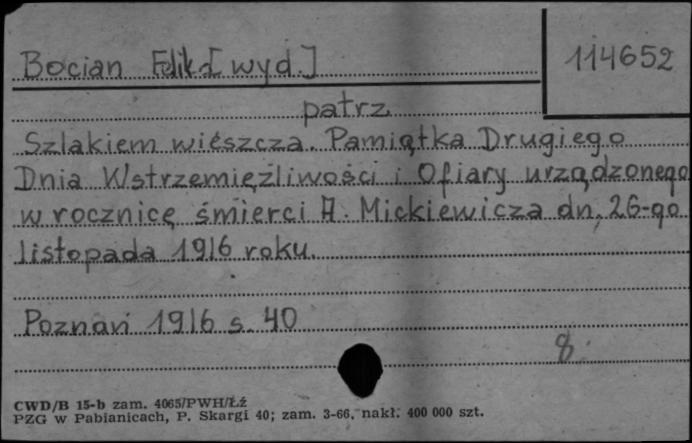 Bocian Feliks [wyd.]
114652
patrz
Szlakiem wieszcza. Pamiątka Drugiego
Dnia Wstrzemięźliwości i Ofiary urządzonego
w rocznicę śmierci A. Mickiewicza dn. 26-go
listopada 1916 roku.
Poznań 1916 s. 40
8.
CWD/B 15-b zam. 4065/PWH/Łź
PZG w Pabianicach, P. Skargi 40; zam. 3-66, nakł. 400 000 szt.